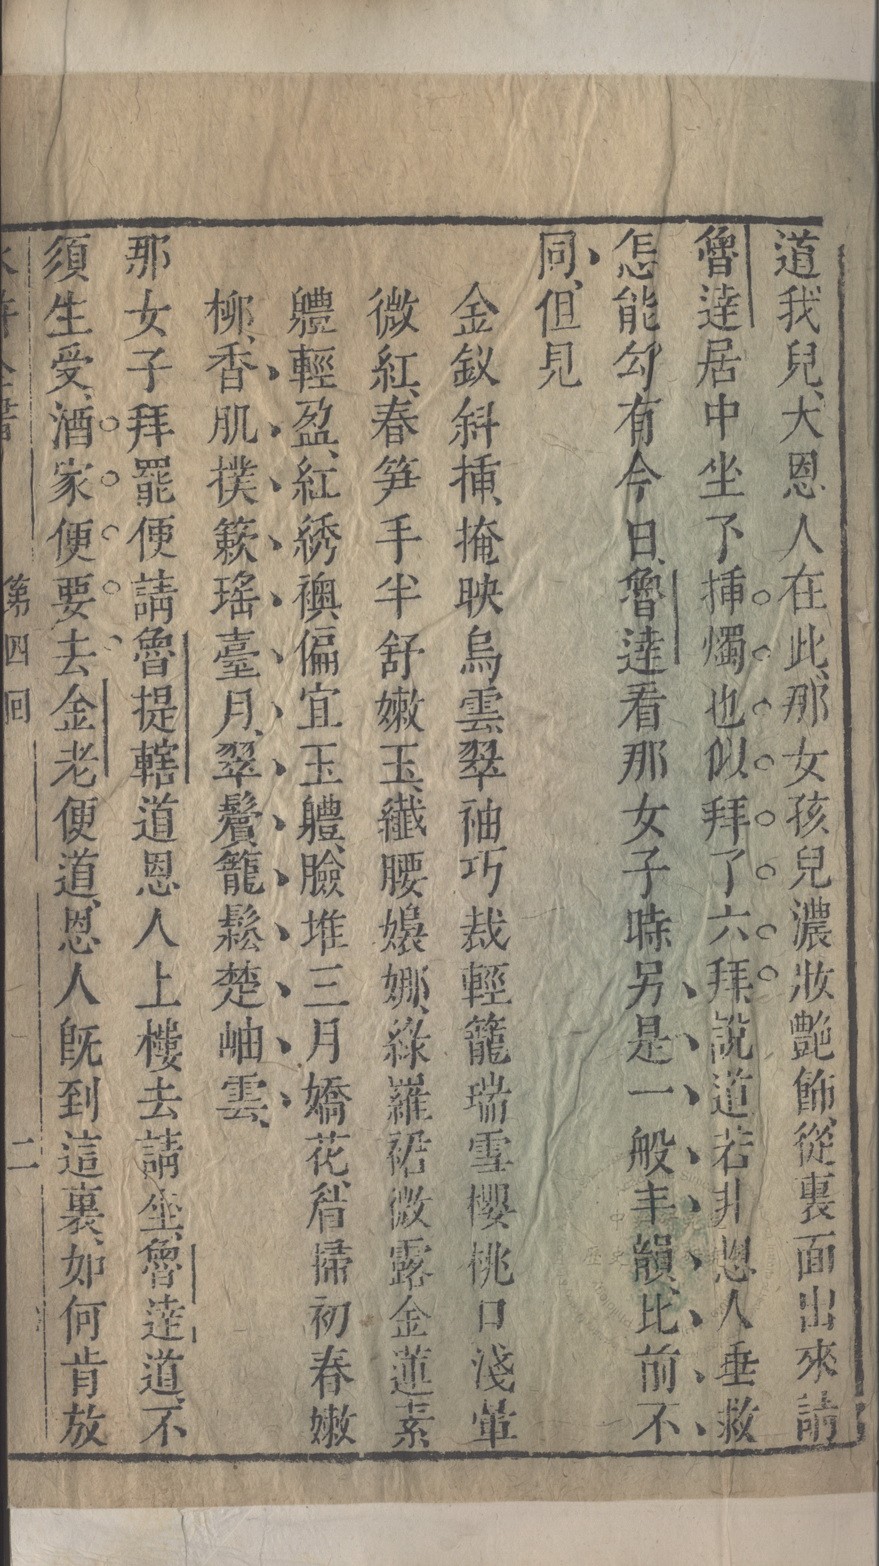 道我兒、大恩人在此、那女孩兒濃妝艶飾、從裏面出來、請
魯達居中坐下、揷燭也似拜了六拜、說道、若非恩人垂救、
怎能勾有今日、魯達看那女子時、另是一般丰韻、比前不
同、但見
金釵斜揷、掩映烏雲、翠袖巧裁、輕籠瑞雪、櫻桃口淺暈
微紅、春笋手半舒嫩玉、纖腰嬝娜、綠羅裙微露金蓮、素
軆輕盈、紅綉襖偏宜玉軆、臉堆三月嬌花、眉掃初春嫩
柳、香肌撲簌瑤臺月、翠鬢籠鬆楚岫雲、
那女子拜罷、便請魯提轄道、恩人上樓去請坐、魯達道、不
須生受、洒家便要去、金老便道、恩人旣到這裏、如何肯放
水滸全書 第四囘 二